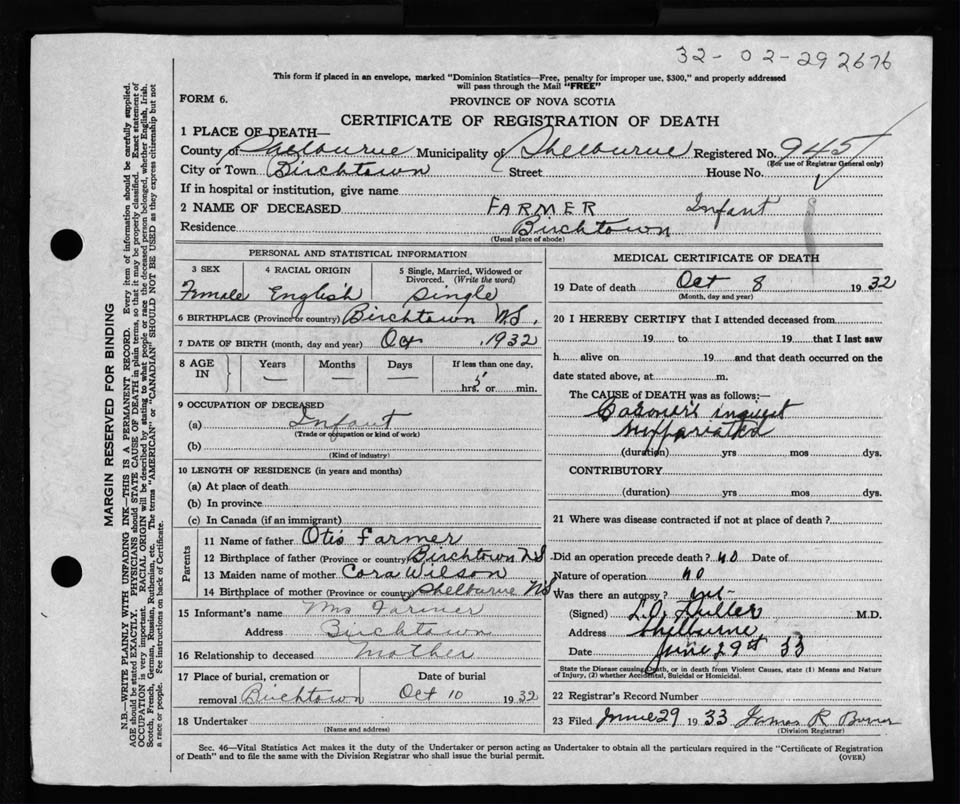 32-02-292676
This form if placed in an envelope, marked "Dominion Statistics—Free, penalty for improper use, $300," and properly addressed
will pass through the Mail "FREE"
FORM 6.
PROVINCE OF NOVA SCOTIA
CERTIFICATE OF REGISTRATION OF DEATH
1 PLACE OF DEATH—
County of Shelburne Municipality of Shelburne Registered No. 945
(For use of Registrar General only)
City or Town Birchtown Street House No.
If in hospital or institution, give name
2 NAME OF DECEASED FARMER Infant
Residence Birchtown
(Usual place of abode)
PERSONAL AND STATISTICAL INFORMATION
3 SEX 4 RACIAL ORIGIN 5 Single, Married, Widowed or
Divorced. (Write the word)
Female English Single
6 BIRTHPLACE (Province or country) Birchtown N.S.
7 DATE OF BIRTH (month, day and year) Oct 1932
8 AGE IN Years Months Days If less than one day,
— — — 5 hrs. or min.
9 OCCUPATION OF DECEASED
(a) Infant
(Trade or occupation or kind of work)
(b)
(Kind of industry)
10 LENGTH OF RESIDENCE (in years and months)
(a) At place of death
(b) In province
(c) In Canada (if an immigrant)
Parents
11 Name of father Otis Farmer
12 Birthplace of father (Province or country) Birchtown NS
13 Maiden name of mother Cora Wilson
14 Birthplace of mother (Province or country) Shelburne NS
15 Informant's name Mrs Farmer
Address Birchtown
16 Relationship to deceased Mother
17 Place of burial, cremation or Date of burial
removal Birchtown Oct 10 1932
18 Undertaker
(Name and address)
MEDICAL CERTIFICATE OF DEATH
19 Date of death Oct 8 1932
(Month, day and year)
20 I HEREBY CERTIFY that I attended deceased from
19 to 19 that I last saw
h alive on 19 and that death occurred on the
date stated above, at m.
The CAUSE of DEATH was as follows:—
inquest
(duration) yrs mos dys.
CONTRIBUTORY
(duration) yrs mos dys.
21 Where was disease contracted if not at place of death?
Did an operation precede death? no Date of
Nature of operation no
Was there an autopsy?
(Signed) L.O. Fuller M.D.
Address Shelburne
Date June 29th 33
State the Disease causing Death, or in death from Violent Causes, state (1) Means and Nature
of Injury, (2) whether Accidental, Suicidal or Homicidal.
22 Registrar's Record Number
23 Filed June 29 1933 James R
(Division Registrar)
Sec. 46—Vital Statistics Act makes it the duty of the Undertaker or person acting as Undertaker to obtain all the particulars required in the "Certificate of Registration
of Death" and to file the same with the Division Registrar who shall issue the burial permit.
(OVER)
MARGIN RESERVED FOR BINDING
N.B.—WRITE PLAINLY WITH UNFADING INK—THIS IS A PERMANENT RECORD. Every item of information should be carefully supplied.
AGE should be stated EXACTLY. PHYSICIANS should STATE CAUSE OF DEATH in plain terms, so that it may be properly classified. Exact statement of
OCCUPATION is very important. RACIAL ORIGIN will be described by stating to what people or race the deceased person belonged, whether English, Irish,
Scotch, French, German, Russian, Ruthenian, etc. The terms "AMERICAN" or "CANADIAN" SHOULD NOT BE USED as they express citizenship but not
a race or people. See instructions on back of Certificate.